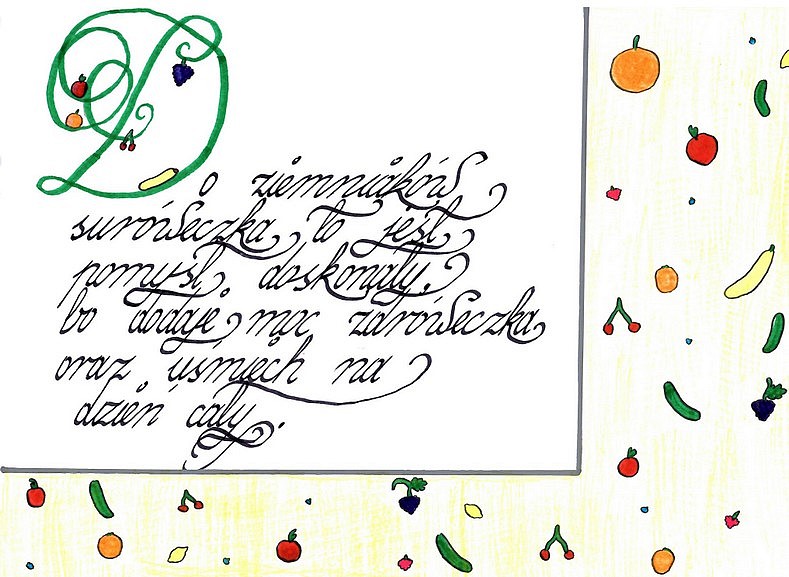 Do ziemniaków
suróweczka to jest
pomysł doskonały,
bo dodaje moc zdróweczka
oraz uśmiech na
dzień cały.